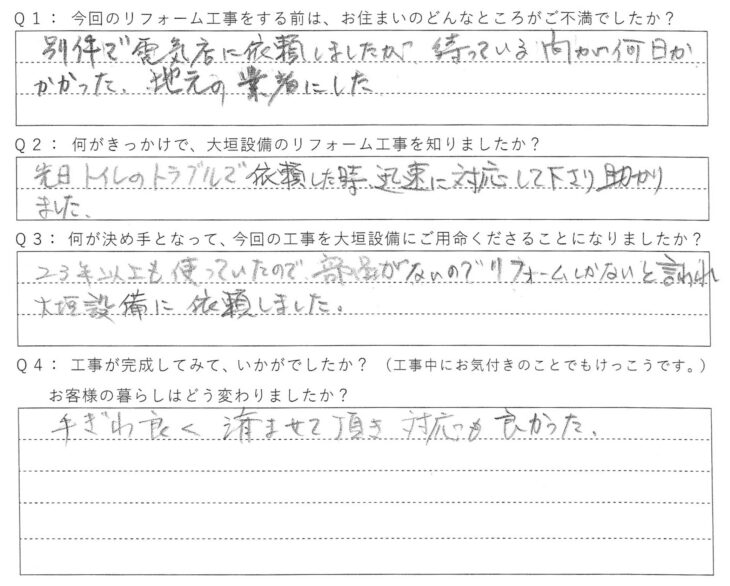 Q1： 今回のリフォーム工事をする前は、お住まいのどんなところがご不満でしたか？
別件で電気店に依頼しましたが 待っている間が何日か
かかった。地元の業者にした
Q2： 何がきっかけで、大垣設備のリフォーム工事を知りましたか？
先日トイレのトラブルで依頼した時 迅速に対応して下さり助かり
ました。
Q3： 何が決め手となって、今回の工事を大垣設備にご用命くださることになりましたか？
23年以上も使っていたので 部品がないのでリフォームしかないと言われ
大垣設備に依頼しました。
Q4： 工事が完成してみて、いかがでしたか？ （工事中にお気付きのことでもけっこうです。）
お客様の暮らしはどう変わりましたか？
手ぎわ良く 済ませて頂き 対応も良かった。